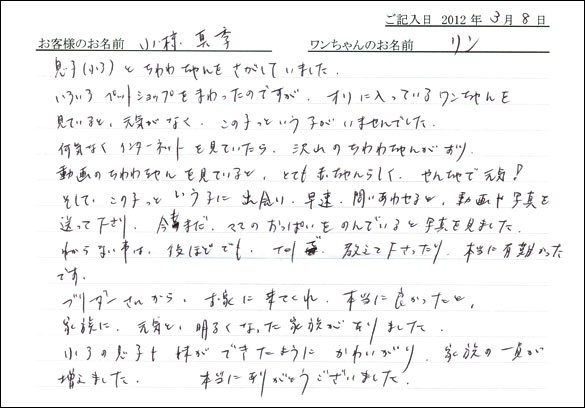 ご記入日 2012年 3月 8日
お客様のお名前 小林 真季 ワンちゃんのお名前 リン
息子(小3)と ちわわちゃんを さがして いました.
いろいろ ペットショップを まわったのですが. オリに入っている ワンちゃんを
見ていると, 元気がなく. この子っと いう子が いませんでした.
何気なく インターネットを見ていたら. 沢山の ちわわちゃんがおり.
動画の ちわわちゃん を見ていると, とても 赤ちゃんらしく. やんちゃで 元気!
そして. この子っと いう子に 出会い. 早速. 問い あわせると, 動画や 写真を
送って下さり. 今まだ. ママの おっぱいを のんでいると 写真を見ました.
わからない事は. 後ほどでも. 教えて下さったり. 本当に 有難かった
です.
ブリーダーさんから. お家に 来てくれ. 本当に 良かったと,
家族に. 元気と, 明るくなった 家族が おりました.
小3の息子も 妹が できたように かわいがり. 家族の 一員が
増えました. 本当に ありがとうございました.